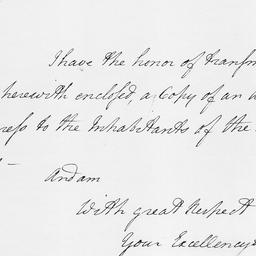 I have the honor of transm
herewith enclosed, a Copy of an a
ress to the Inhabitants of the
And am
With great Respect
Your Excellency's